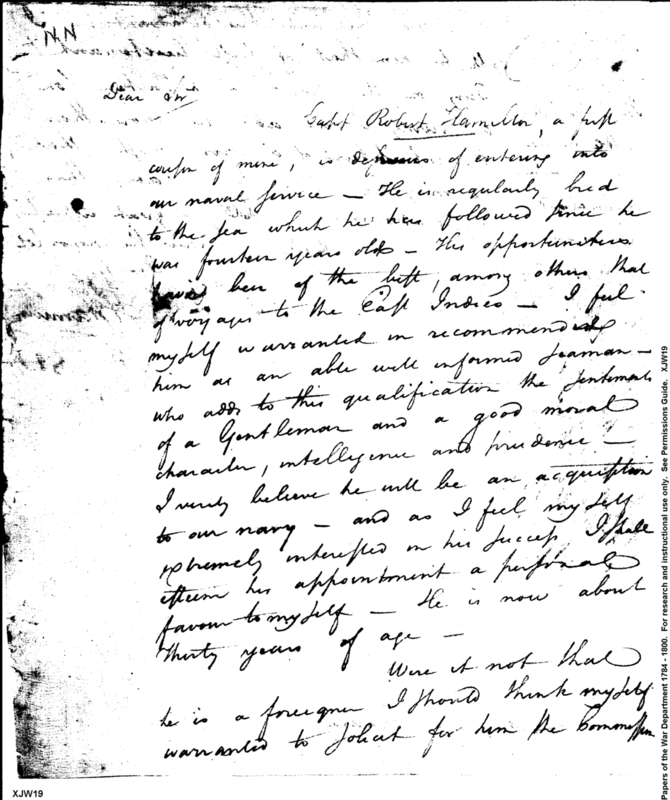 NN
Dear Sir
Capt Robert Hamilton, a first
cousin of mine, is desirous of entering into
our naval service — He is regularly bred
to the sea which he has followed since he
was fourteen years old — His opportunities
have been of the best, among others that
of voyages to the East Indies — I feel
myself warranted in recommending
him as an able well informed seaman —
who adds to this qualification the sentiments
of a Gentleman and a good moral
character, intelligence and prudence —
I verily believe he will be an acquisition
to our navy — and as I feel myself
extremely interested in his success I shall
esteem his appointment a personal
favour to myself — He is now about
thirty years of age —
Were it not that
he is a foreigner I should think myself
warranted to solicit for him the Commission
XJW19
Papers of the War Department 1784 - 1800. For research and instructional use only. See Permissions Guide. XJW19